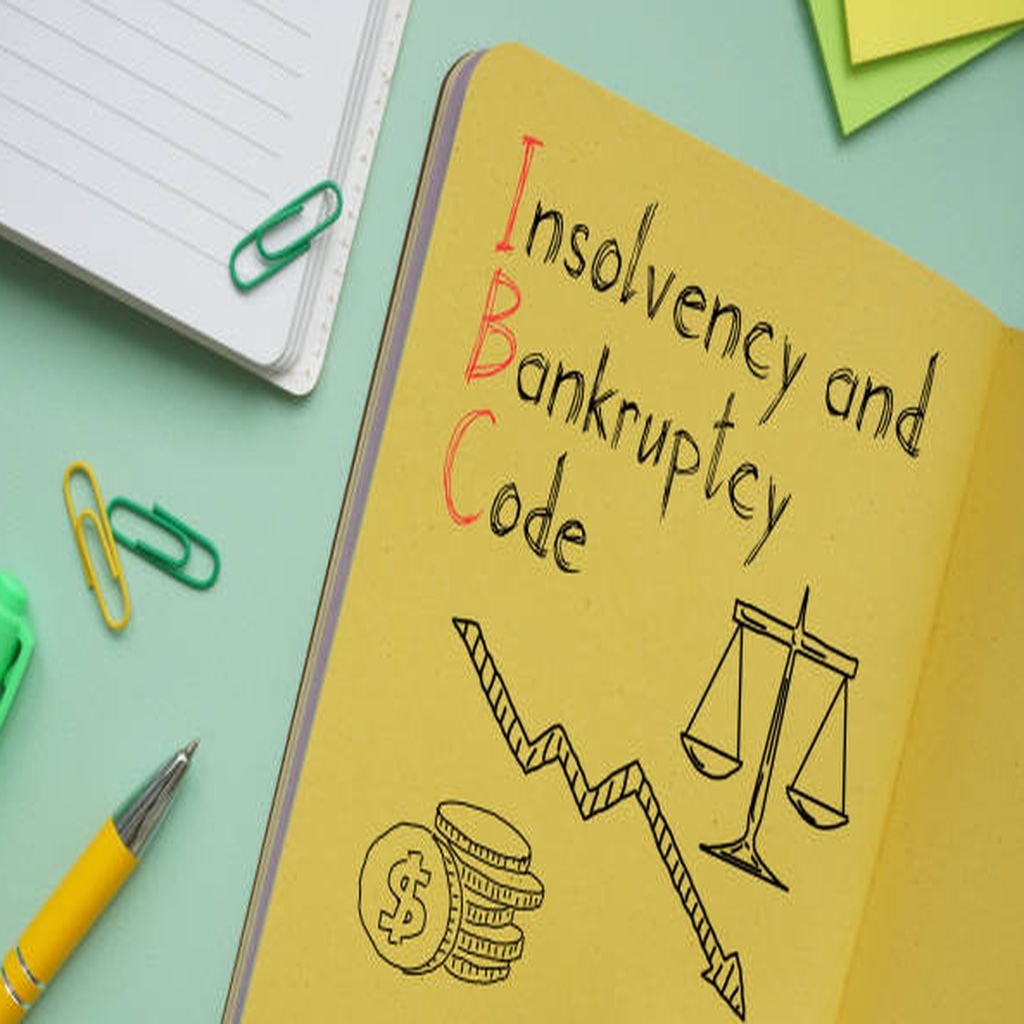 Insolvency and
Bankruptcy
Code
$